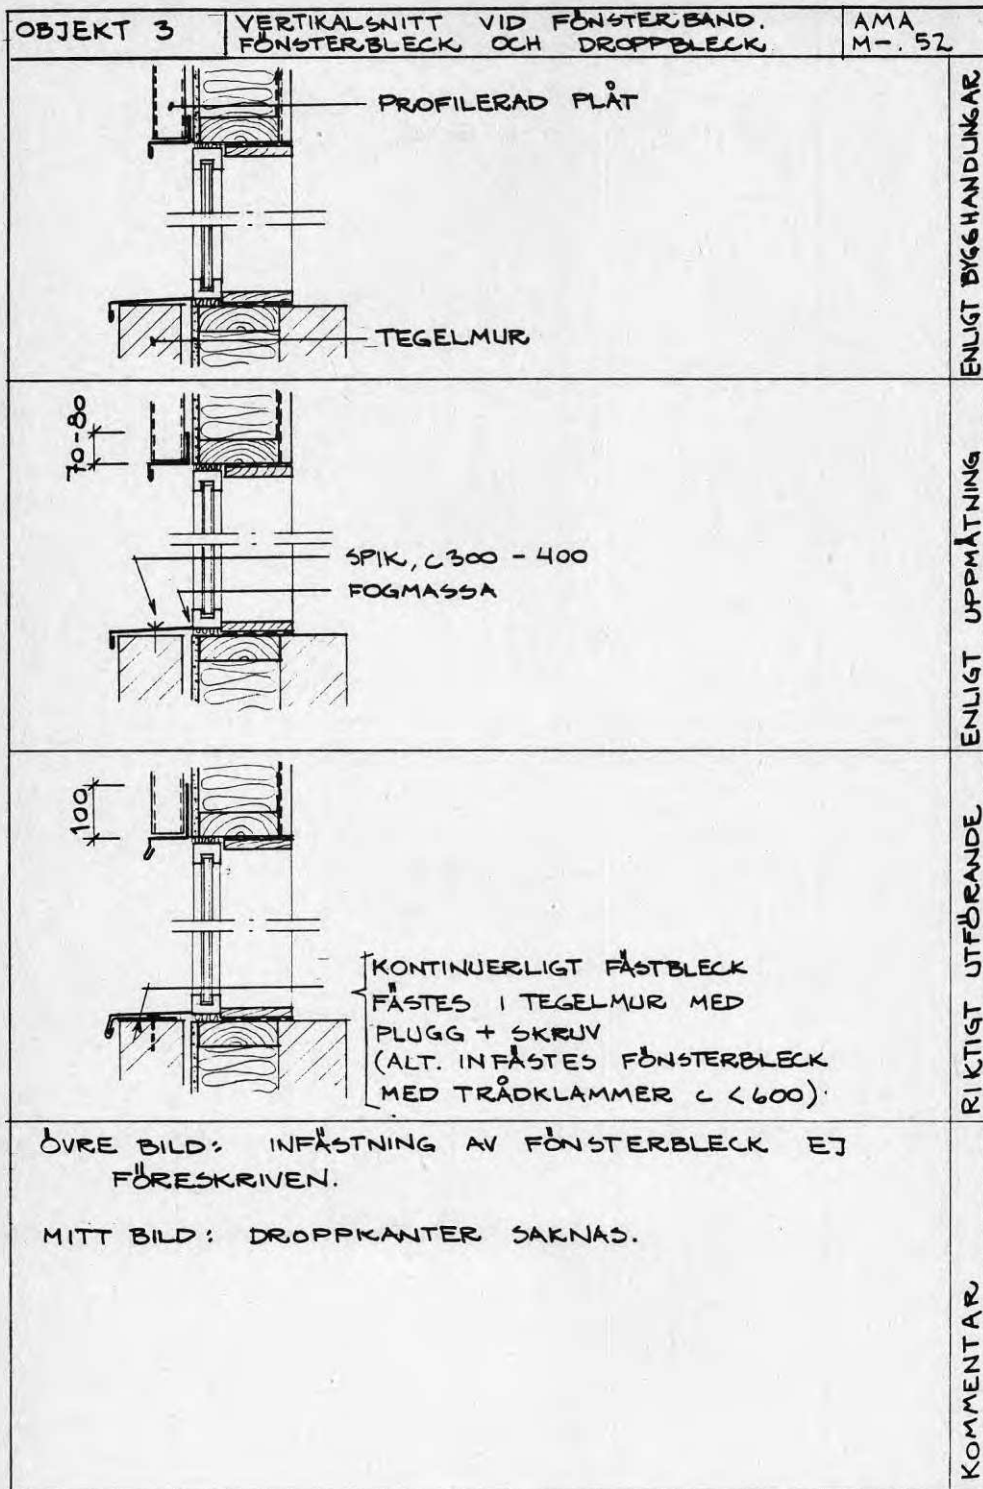 OBJEKT 3
VERTIKALSNITT VID FÖNSTERBAND.
FÖNSTERBLECK OCH DROPPBLECK
AMA
M-. 52
PROFILERAD PLÅT
TEGELMUR
ENLIGT BYGGHANDLINGAR
70-80
SPIK, C 300 - 400
FOGMASSA
ENLIGT UPPMÄTNING
100
KONTINUERLIGT FÄSTBLECK
FÄSTES I TEGELMUR MED
PLUGG + SKRUV
(ALT. INFÄSTES FÖNSTERBLECK
MED TRÅDKLAMMER C < 600).
RIKTIGT UTFÖRANDE
ÖVRE BILD: INFÄSTNING AV FÖNSTERBLECK EJ
FÖRESKRIVEN.
MITT BILD: DROPPKANTER SAKNAS.
KOMMENTAR